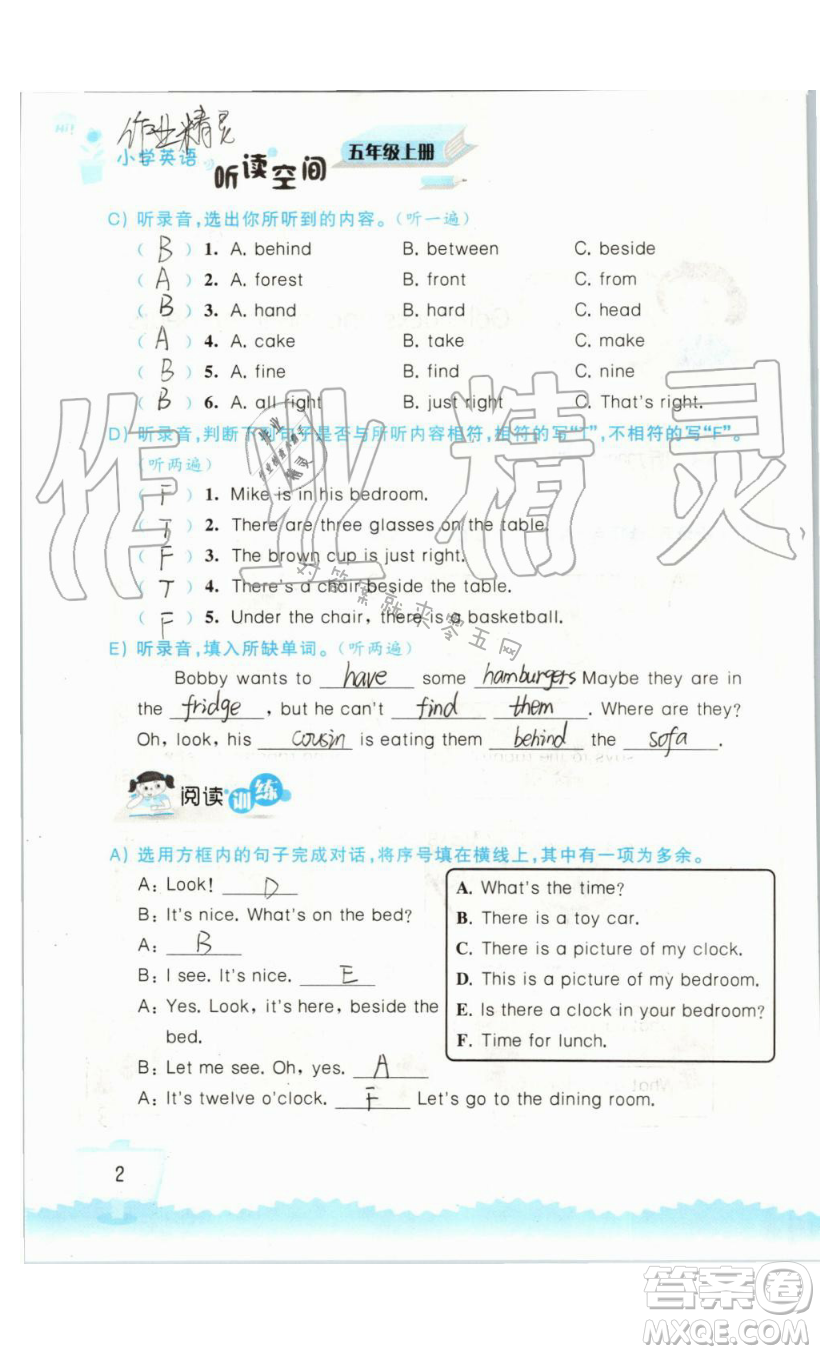 Hi!
作业精灵
小学英语 听读空间 五年级上册
C) 听录音,选出你所听到的内容。(听一遍)
( B ) 1. A. behind B. between C. beside
( A ) 2. A. forest B. front C. from
( B ) 3. A. hand B. hard C. head
( A ) 4. A. cake B. take C. make
( B ) 5. A. fine B. find C. nine
( B ) 6. A. all right B. just right C. That's right.
D) 听录音,判断下列句子是否与所听内容相符,相符的写"T",不相符的写"F"。
(听两遍)
( F ) 1. Mike is in his bedroom.
( T ) 2. There are three glasses on the table.
( F ) 3. The brown cup is just right.
( T ) 4. There's a chair beside the table.
( F ) 5. Under the chair, there is a basketball.
E) 听录音,填入所缺单词。(听两遍)
Bobby wants to have some hamburgers Maybe they are in
the fridge, but he can't find them. Where are they?
Oh, look, his cousin is eating them behind the sofa.
阅读训练
A) 选用方框内的句子完成对话,将序号填在横线上,其中有一项为多余。
A: Look! D
B: It's nice. What's on the bed?
A: B
B: I see. It's nice. E
A: Yes. Look, it's here, beside the
bed.
B: Let me see. Oh, yes. A
A: It's twelve o'clock. F Let's go to the dining room.
A. What's the time?
B. There is a toy car.
C. There is a picture of my clock.
D. This is a picture of my bedroom.
E. Is there a clock in your bedroom?
F. Time for lunch.
2
作业精灵
对答案就来零五网
答案卷
MXQE.COM